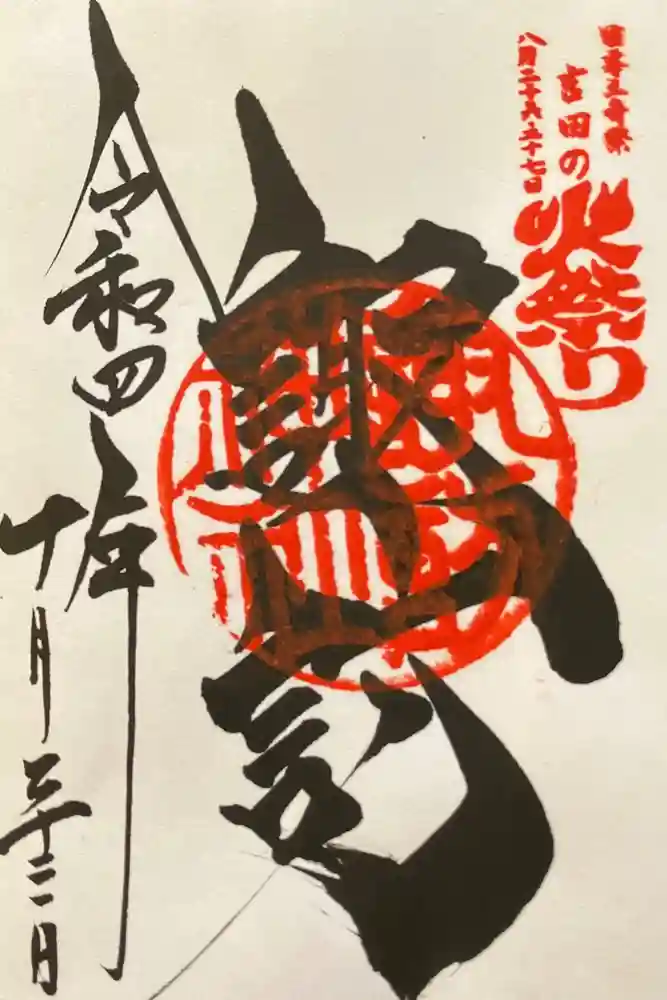 日本三奇祭
吉田の火祭り
八月二十六二十七日
諏訪
令和四年
十月二十二日